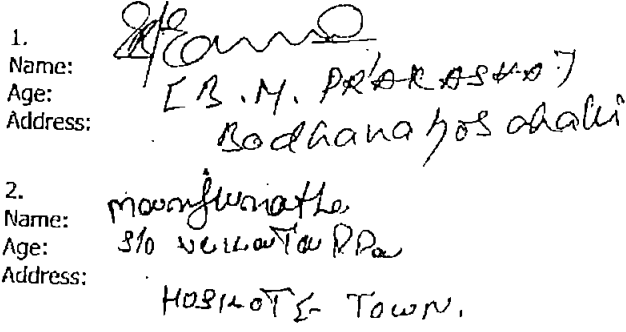 1.
Name:
[B.M. PRAKASHA]
Age:
Address:
Bodhana hosahalli
2.
Name: Manjunatha
Age: S/o Venkatappa
Address:
HOSKOTE TOWN.